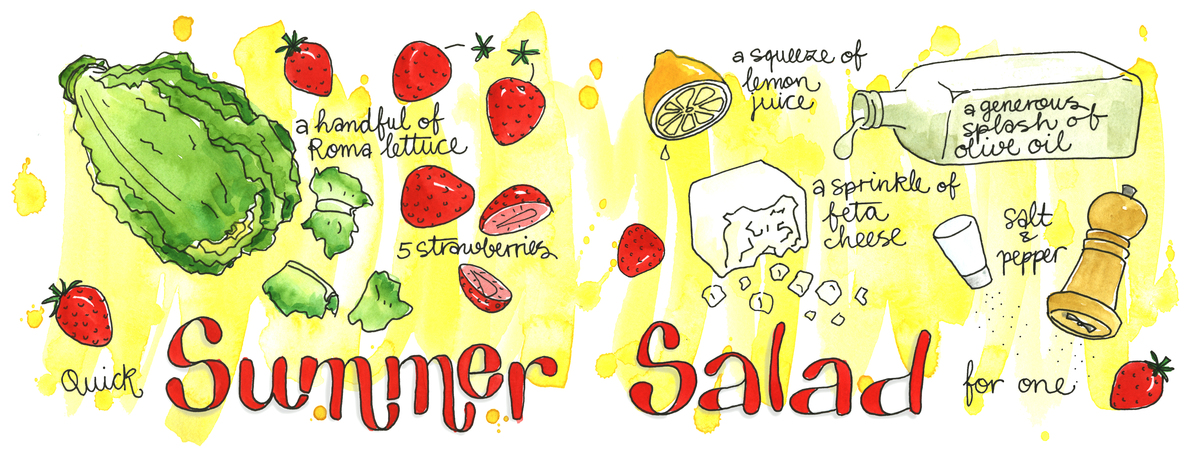 a handful of
Roma lettuce
5 strawberries
a squeeze of
lemon
juice
a generous
splash of
olive oil
a sprinkle of
feta
cheese
salt
&
pepper
Quick
Summer
Salad
for one